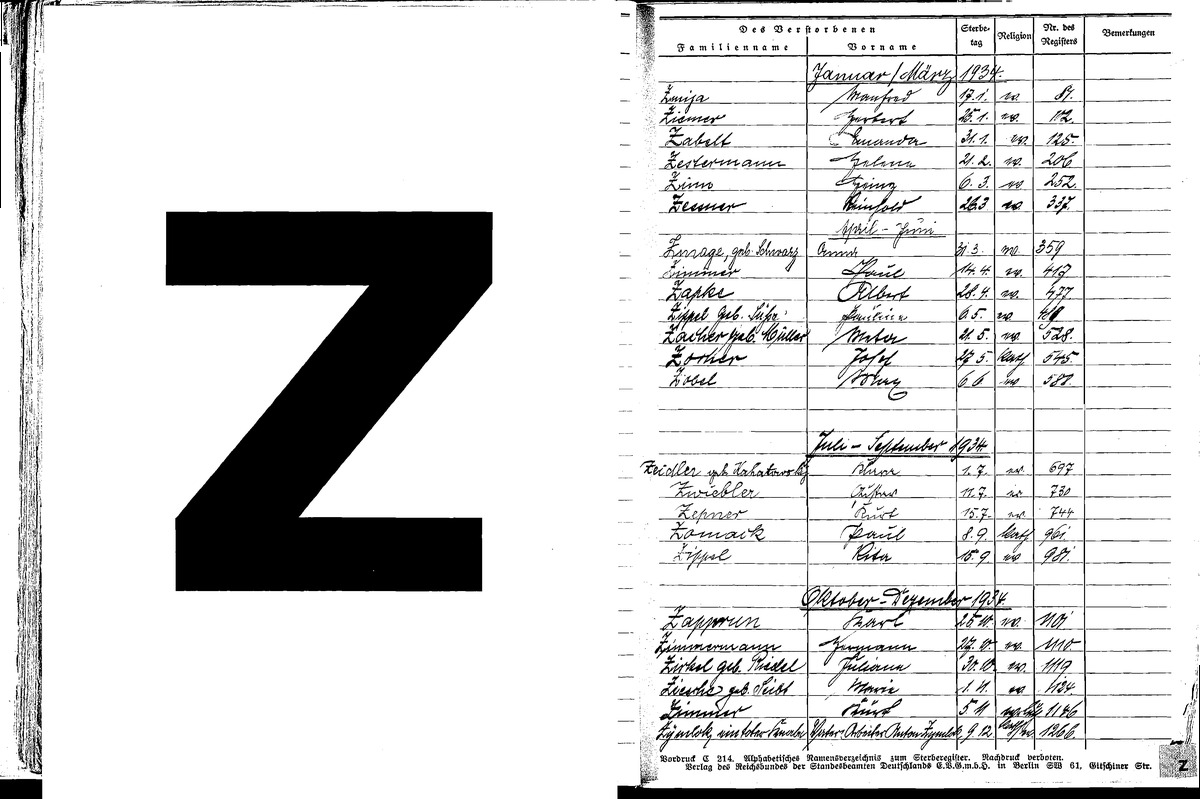 Z
Des Verstorbenen
Familienname Vorname Sterbetag Religion Nr. des Registers Bemerkungen
Januar/März 1934.
Manfred 17.1. ev. 81.
Ziemer Herbert 25.1. ev. 112.
Zabelt Amanda 31.1. ev. 125.
Zestermann Helene 21.2. ev. 206
Zimo 6.3. ev 252.
Zesner Reinhold 26.3 ev 337.
April - Juni
Zmrage, geb. Schwarz Anna 31.3. ev. 359
Zimmer Paul 14.4. ev. 417
Zapke Albert 28.4. ev. 477.
Zippel geb. Süße Pauline 6.5. ev.
Zacher geb. Müller Meta 21.5. ev. 528.
Zorner Josef 27.5. kath 545.
Zobel Max 6.6 ev 581.
Juli - September 1934.
Zeidler geb. Klara 1.7. ev. 697
Zwiebler Gustav 11.7. ev 730
Zepner Kurt 15.7. ev. 744
Zomack Paul 8.9. kath 961.
Zippel Rita 15.9. ev. 981.
Oktober - Dezember 1934.
Zapprun Karl 25.10. ev. 1101
Zimmermann Hermann 27.10. ev. 1110
Zirkel geb. Riedel Juliana 30.10. ev. 1119
Zische geb. Seibt Marie 1.11. ev 1124
Zimmer Kurt 5.11 1146
Zymlok, totes Knabe Vater: Arbeiter Anton Zymlok 9.12. 1266.
Vordruck C 214. Alphabetisches Namensverzeichnis zum Sterberegister. Nachdruck verboten.
Verlag des Reichsbundes der Standesbeamten Deutschlands E.V.G.m.b.H. in Berlin SW 61, Gitschiner Str.
Z